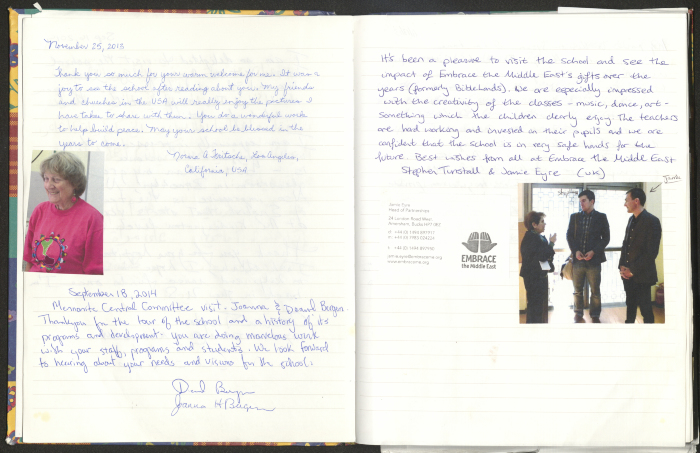 November 25, 2013
Thank you so much for your warm welcome for me. It was a
joy to see the school after reading about you. My friends
and churches in the USA will really enjoy the pictures I
have taken to share with them. You do a wonderful work
to help build peace. May your school be blessed in the
years to come.
Norma A Los Angeles,
California, USA
September 18, 2014
Mennonite Central Committee visit. Joanna & Daniel Bergen
Thankyou for the tour of the school and a history of its
programs and development. You are doing marvelous work
with your staff, programs and students. We look forward
to hearing about your needs and visions for the school.
Joanna H Bergen
It's been a pleasure to visit the school and see the
impact of Embrace the Middle East's gifts over the
years (formerly Biblelands). We are especially impressed
with the creativity of the classes - music, dance, art -
something which the children clearly enjoy. The teachers
are hard working and invested in their pupils and we are
confident that the school is in very safe hands for the
future. Best wishes from all at Embrace the Middle East
Stephen Tunstall & Jamie Eyre (UK)
Jamie Eyre
Head of Partnerships
24 London Road West,
Amersham, Bucks HP7 0EZ
EMBRACE
the Middle East
Stephen
Jamie